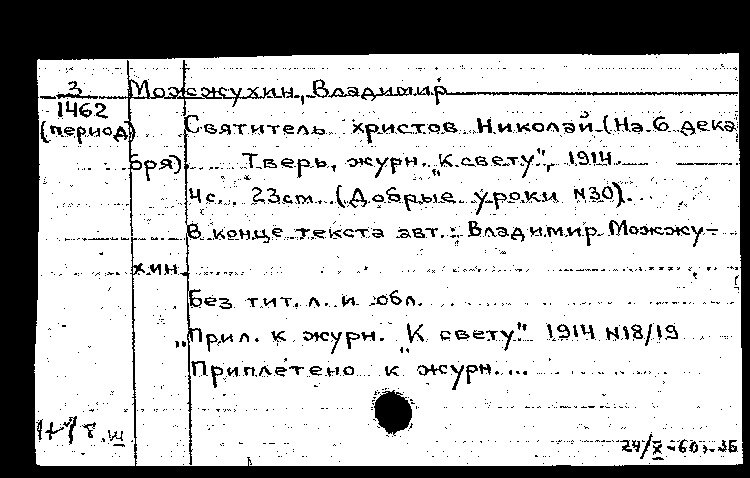 З Можжухин, Владимир
1462
(период) Святитель христов Николай (На 6 дека
бря). Тверь, журн. „К свету", 1914.
4с. 23см (Добрые уроки №30).
В конце текста авт.: Владимир Можжу-
хин.
Без тит. л. и обл.
„Прил. к журн. „К свету" 1914 №18/19
Приплетено к журн. ...
24/X-60г.